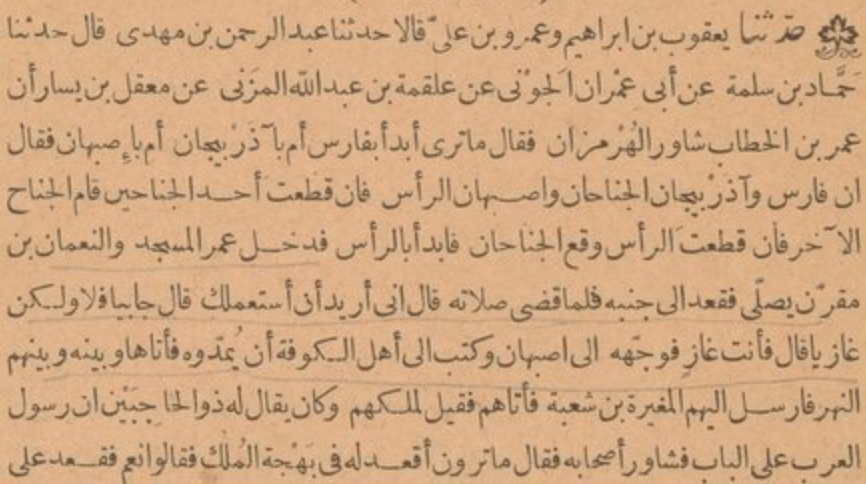 حدّثنا يعقوب بن ابراهيم وعمرو بن علىّ قالا حدثنا عبد الرحمن بن مهدى قال حدثنا
حمَّاد بن سلمة عن أبى عمْران الجوْنى عن علقمة بن عبد الله المزَنى عن معقل بن يسار أن
عمر بن الخطاب شاور الهُرْمزان فقال ماترى أبدأ بفارس أم بآذرْبيجان أم بإصبهان فقال
ان فارس وآذرْبيجان الجناحان واصبهان الرأس فان قطعت أحد الجناحين قام الجناح
الآخر فان قطعتَ الرأس وقع الجناحان فابدأ بالرأس فدخل عمر المسجد والنعمان بن
مقرّن يصلّى فقعد الى جنبه فلما قضى صلاته قال انى أريد أن أستعملك قال جابيا فلا ولكن
غازيا قال فأنت غازٍ فوجّهه الى اصبهان وكتب الى أهل الكوفة أن يُمدّوه فأتاها وبينه وبينهم
النهر فارسل اليهم المغيرة بن شعبة فأتاهم فقيل لملكهم وكان يقال له ذوالحاجبَيْن ان رسول
العرب على الباب فشاور أصحابه فقال ماترون أقعد له فى بَهْجة المُلك فقالوا نعم فقعد على